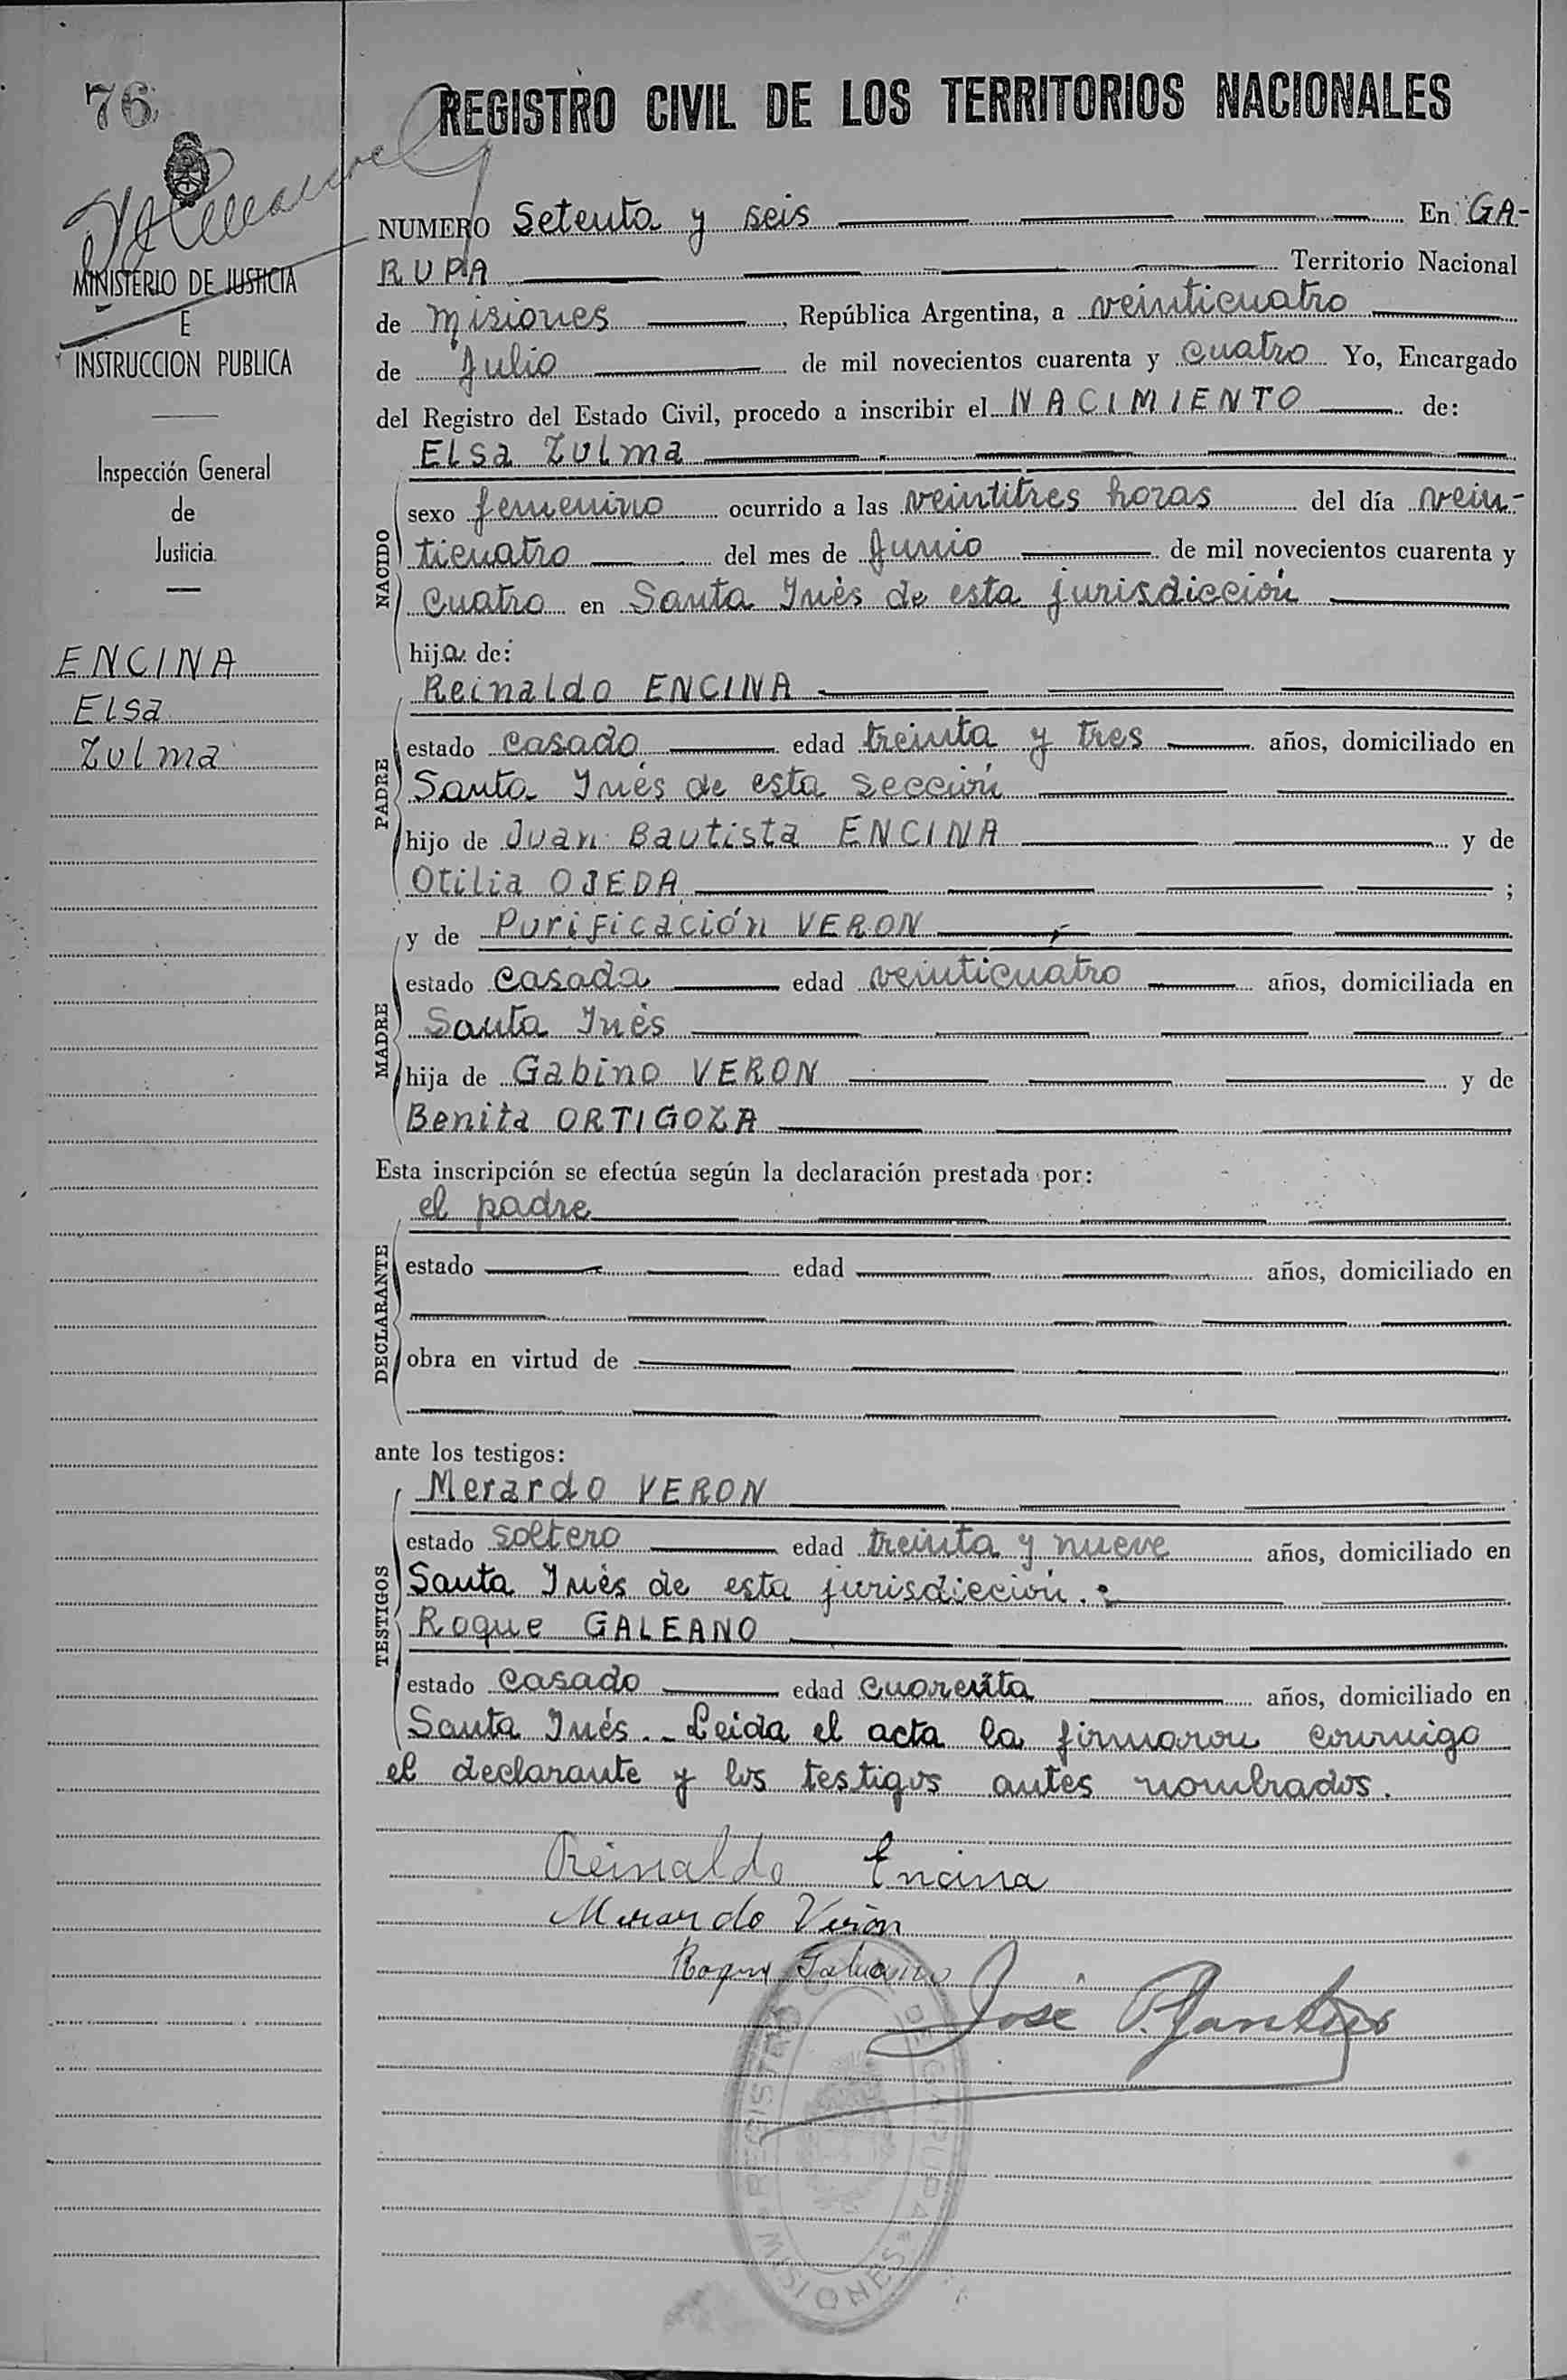 76
REGISTRO CIVIL DE LOS TERRITORIOS NACIONALES
MINISTERIO DE JUSTICIA
E
INSTRUCCION PUBLICA
Inspección General
de
Justicia
ENCINA
Elsa
Zulma
NUMERO Setenta y seis En GA-
RUPA Territorio Nacional
de Misiones, República Argentina, a veinticuatro
de Julio de mil novecientos cuarenta y cuatro Yo, Encargado
del Registro del Estado Civil, procedo a inscribir el NACIMIENTO de:
Elsa Zulma
NACIDO
sexo femenino ocurrido a las veintitres horas del día vein-
ticuatro del mes de Junio de mil novecientos cuarenta y
cuatro en Santa Inés de esta jurisdicción
hija de:
PADRE
Reinaldo ENCINA
estado casado edad treinta y tres años, domiciliado en
Santa Inés de esta sección
hijo de Juan Bautista ENCINA y de
Otilia OJEDA ;
MADRE
y de Purificación VERON
estado casada edad veinticuatro años, domiciliada en
Santa Inés
hija de Gabino VERON y de
Benita ORTIGOZA
Esta inscripción se efectúa según la declaración prestada por:
DECLARANTE
el padre
estado edad años, domiciliado en
obra en virtud de
ante los testigos:
TESTIGOS
Merardo VERON
estado soltero edad treinta y nueve años, domiciliado en
Santa Inés de esta jurisdicción.
Roque GALEANO
estado casado edad cuarenta años, domiciliado en
Santa Inés.- Leida el acta la firmaron conmigo
el declarante y los testigos antes nombrados.
Reinaldo Encina
Merardo Verón
Roque Galeano
José
REGISTRO DE GARUPA
MISIONES